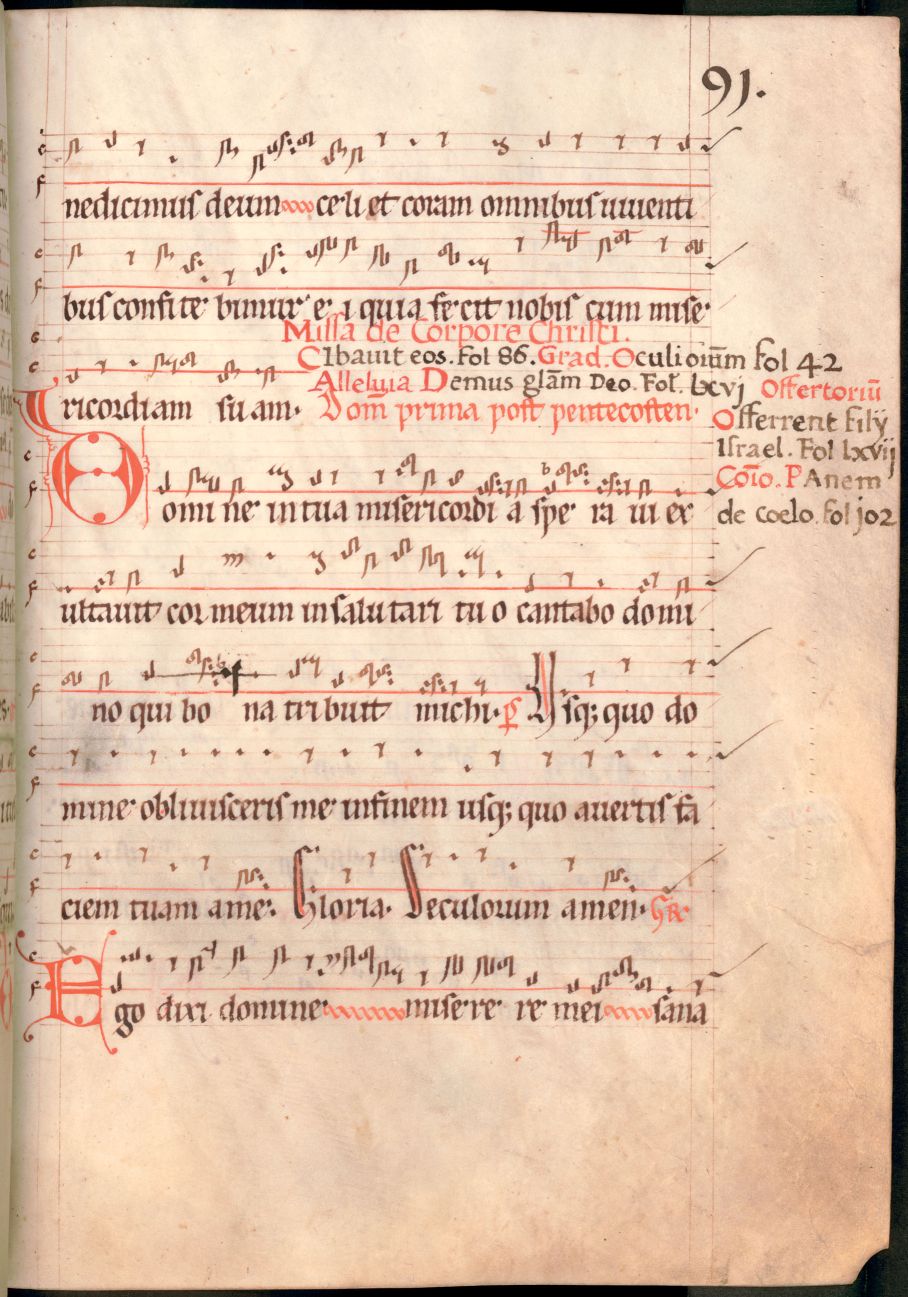 91.
nedicimus deum celi et coram omnibus uiuenti
bus confite bimur e i quia fe cit nobis cum mise
Missa de Corpore Christi.
CIbauit eos. Fol 86. Grad. Oculi oiūm Fol 42
Alleluia Demus glām Deo. Fol. lxvj Offertoriū
ricordiam suam. Dom̄ prima post pentecosten.
Offerrent filÿ
Israel. Fol lxvij
Cōio. PAnem
de coelo. fol 102
Domi ne in tua misericordi a spe ra ui ex
ultauit cor meum in salu tari tu o cantabo domi
no qui bo na tribuit michi. p̄ Vsq; quo do
mine obliuisceris me in finem usq; quo auertis fa
ciem tuam a me. Gloria. Seculorum amen. GR
Ego dixi domine mise re re mei sana